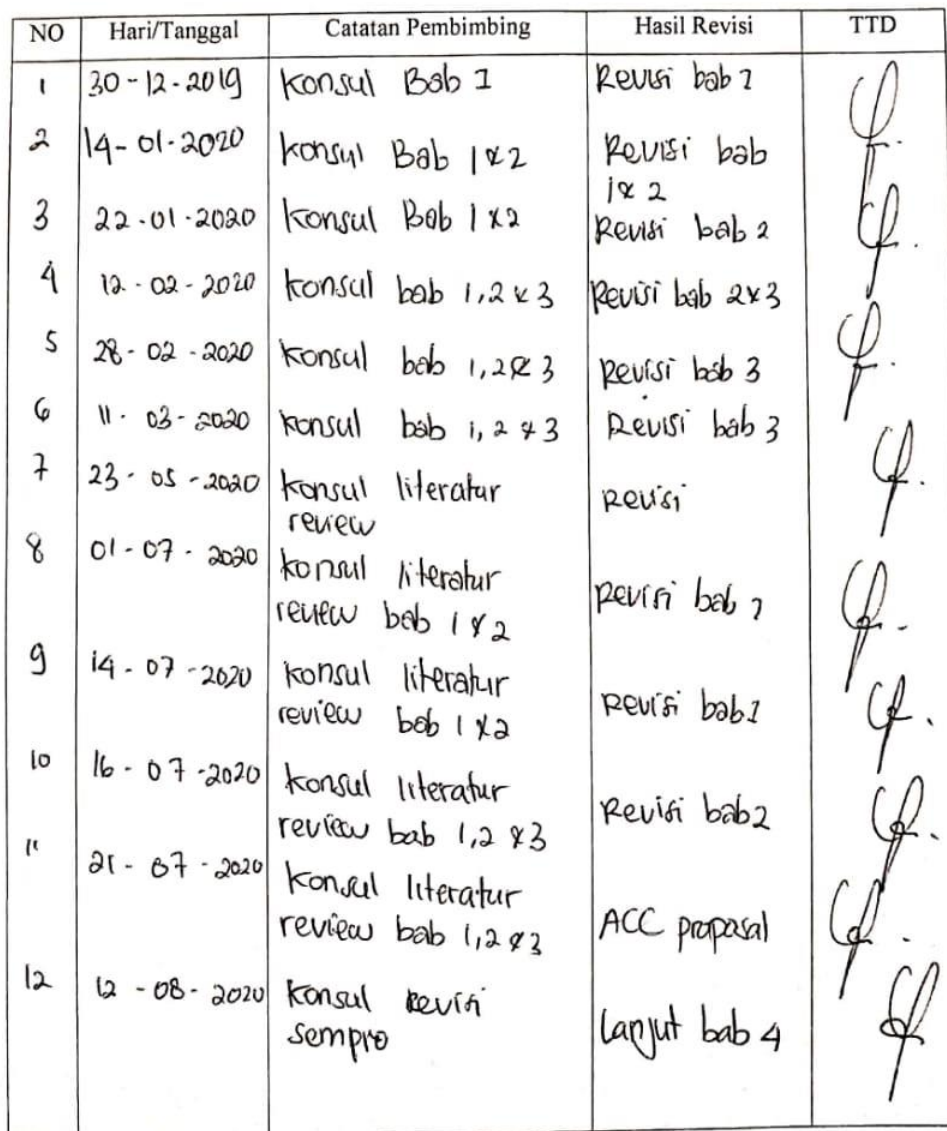 NO Hari/Tanggal Catatan Pembimbing Hasil Revisi TTD
1 30-12-2019 Konsul Bab 1 Revisi bab 1
2 14-01-2020 Konsul Bab 1 & 2 Revisi bab
1 & 2
3 22-01-2020 Konsul Bab 1 & 2 Revisi bab 2
4 12-02-2020 Konsul bab 1,2 & 3 Revisi bab 2 & 3
5 28-02-2020 Konsul bab 1,2 & 3 Revisi bab 3
6 11-03-2020 Konsul bab 1, 2 & 3 Revisi bab 3
7 23-05-2020 Konsul literatur Revisi
review
8 01-07-2020 Konsul literatur
review bab 1 & 2 Revisi bab 1
9 14-07-2020 Konsul literatur
review bab 1 & 2 Revisi bab 1
10 16-07-2020 Konsul literatur
review bab 1,2 & 3 Revisi bab 2
11 21-07-2020 Konsul literatur
review bab 1,2 & 3 ACC proposal
12 12-08-2020 Konsul revisi
sempro Lanjut bab 4